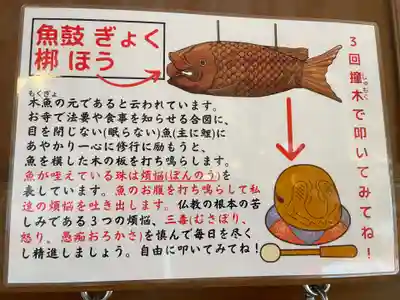 魚鼓 ぎょく
梆 ほう
3回撞木で叩いてみてね!
しゅもく
もくぎょ
木魚の元であると云われています。
お寺で法要や食事を知らせる合図に、
目を閉じない(眠らない)魚(主に鯉)に
あやかり一心に修行に励もうと、
魚を模した木の板を打ち鳴らします。
魚が咥えている珠は煩悩(ぼんのう)を
表しています。魚のお腹を打ち鳴らして私
達の煩悩を吐き出します。仏教の根本の苦
しみである3つの煩悩、三毒(むさぼり、
怒り、愚痴おろかさ)を慎んで毎日を尽く
し精進しましょう。自由に叩いてみてね!